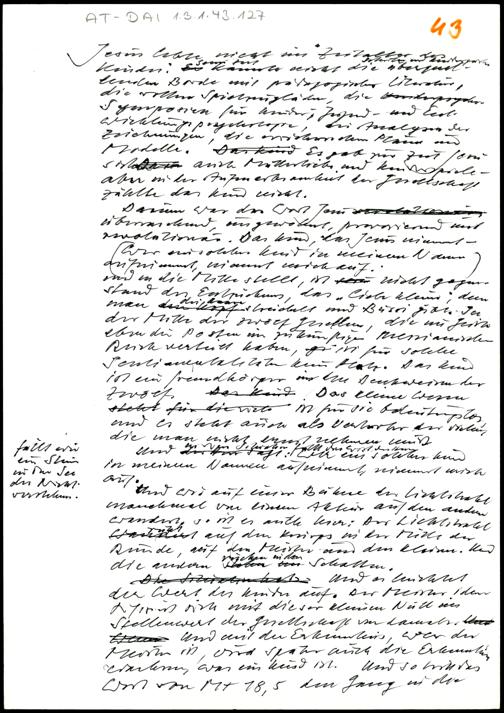 AT-DAI 13.1.43.127
43
Jesus lebte nicht im Zeitalter des
Kindes. kannte nicht die überquel-
lenden Borde mit pädagogischer Literatur,
die vollen Spielzeugläden, die
Symposien für Kinder, Jugend- und
wicklungspsychologie, die Analysen der
Zeichnungen, die erzieherischen Pläne und
Modelle. Es gab zur Zeit Jesu
auch Mütterlichkeit und Kinderspiele
aber in der Aufmerksamkeit der Gesellschaft
zählte das Kind nicht.
Darum war das Wort Jesu
überraschend, ungewohnt, provozierend und
revolutionär. Das Kind, das Jesus nimmt -
(Wer ein solches Kind in meinem Namen
aufnimmt, nimmt mich auf.)
und in die Mitte stellt, ist nicht Gegen-
stand des Entzückens, das "Liebe kleine", dem
man streichelt und Bussi gibt. In
der Mitte der zwölf Gesellen, die im Geiste
eben die Posten im zukünftigen messianischen
Reich verteilt haben, ist für solche
Sentimentalitäten kein Platz. Das Kind
ist ein Fremdkörper in der Denkweise der
Zwölf. Das kleine Wesen
ist für sie bedeutungslos
und es steht auch als Vertreter der vielen,
die man nicht ernst nehmen muß
Und Wer ein solches Kind
in meinem Namen aufnimmt, nimmt mich
auf.
fällt wie
ein Stein
in den See
des Nicht-
verstehens.
Und wie auf einer Bühne der Lichtstrahl
manchmal von einem Akteur auf den andern
wandert, so ist es auch hier: Der Lichtstrahl
auf den Knirps in der Mitte der
Runde, auf den Meister und den Kleinen. Und
die andern Schatten.
Und es leuchtet
der Wert des Kindes auf. Der Meister iden-
tifiziert sich mit dieser kleinen Null im
Stellenwert der Gesellschaft von damals.
Und mit der Erkenntnis, wer der
Meister ist, wird später auch die Erkenntnis
wachsen, was ein Kind ist. Und so tritt das
Wort von Mt 18,5 den Gang in die